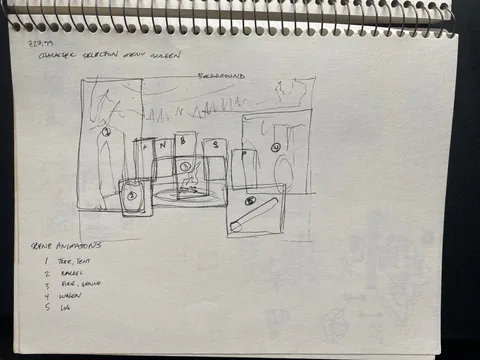 7.27.99
CHARACTER SELECTION MENU SCREEN
BACKGROUND
1
A N B S
P
3
4
2
5
SCENE ANIMATIONS
1 TREE, TENT
2 BARREL
3 FIRE, GROUND
4 WAGON
5 LOG